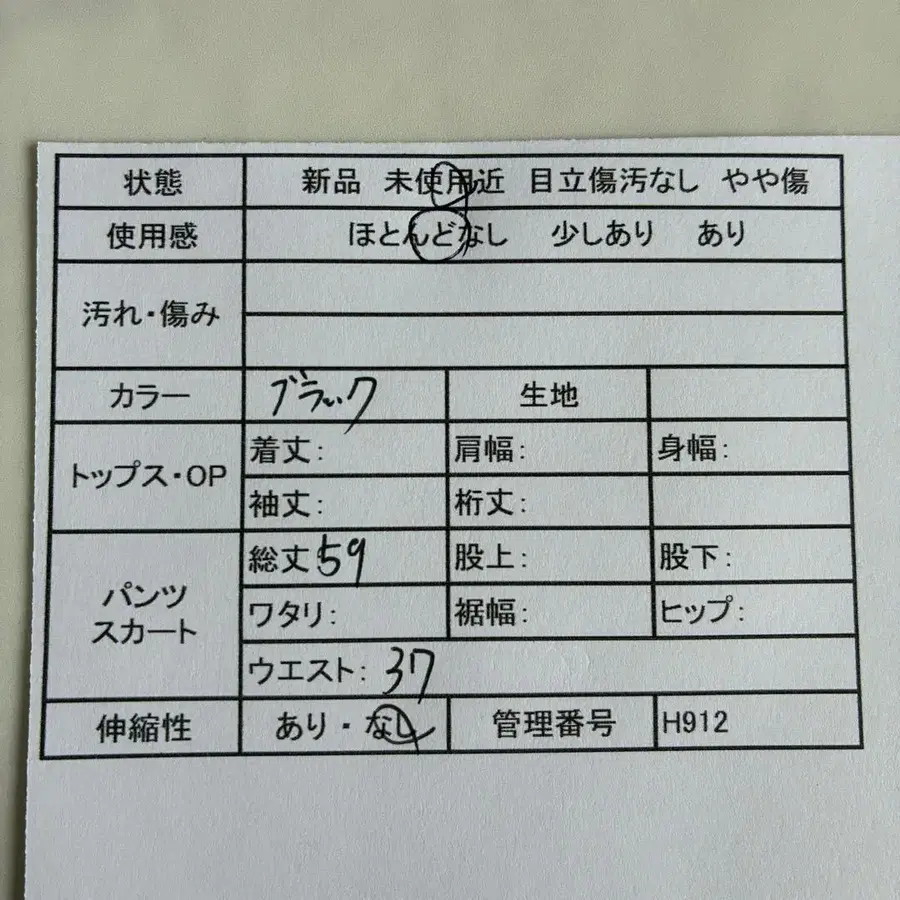 状態 新品 未使用近 目立傷汚なし やや傷
使用感 ほとんどなし 少しあり あり
汚れ・傷み
カラー ブラック 生地
トップス・OP 着丈: 肩幅: 身幅:
袖丈: 裄丈:
パンツ
スカート
総丈 59 股上: 股下:
ワタリ: 裾幅: ヒップ:
ウエスト: 37
伸縮性 あり・なし 管理番号 H912